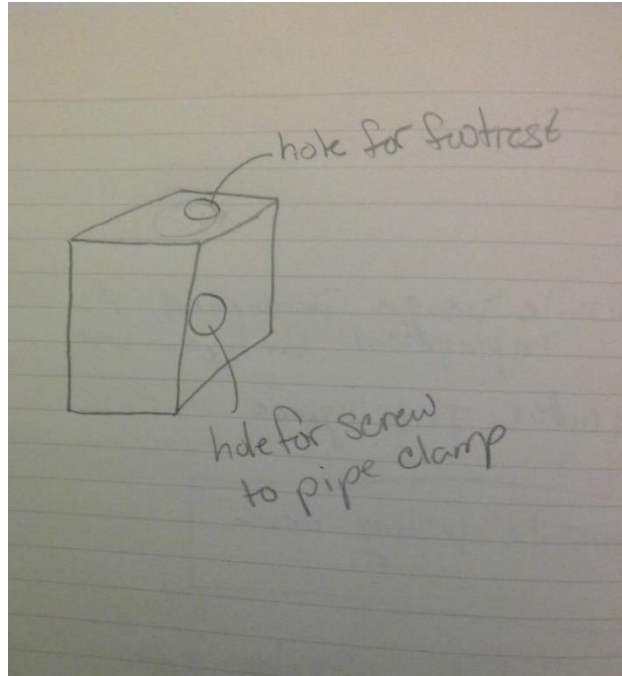 hole for footrest
hole for screw
to pipe clamp